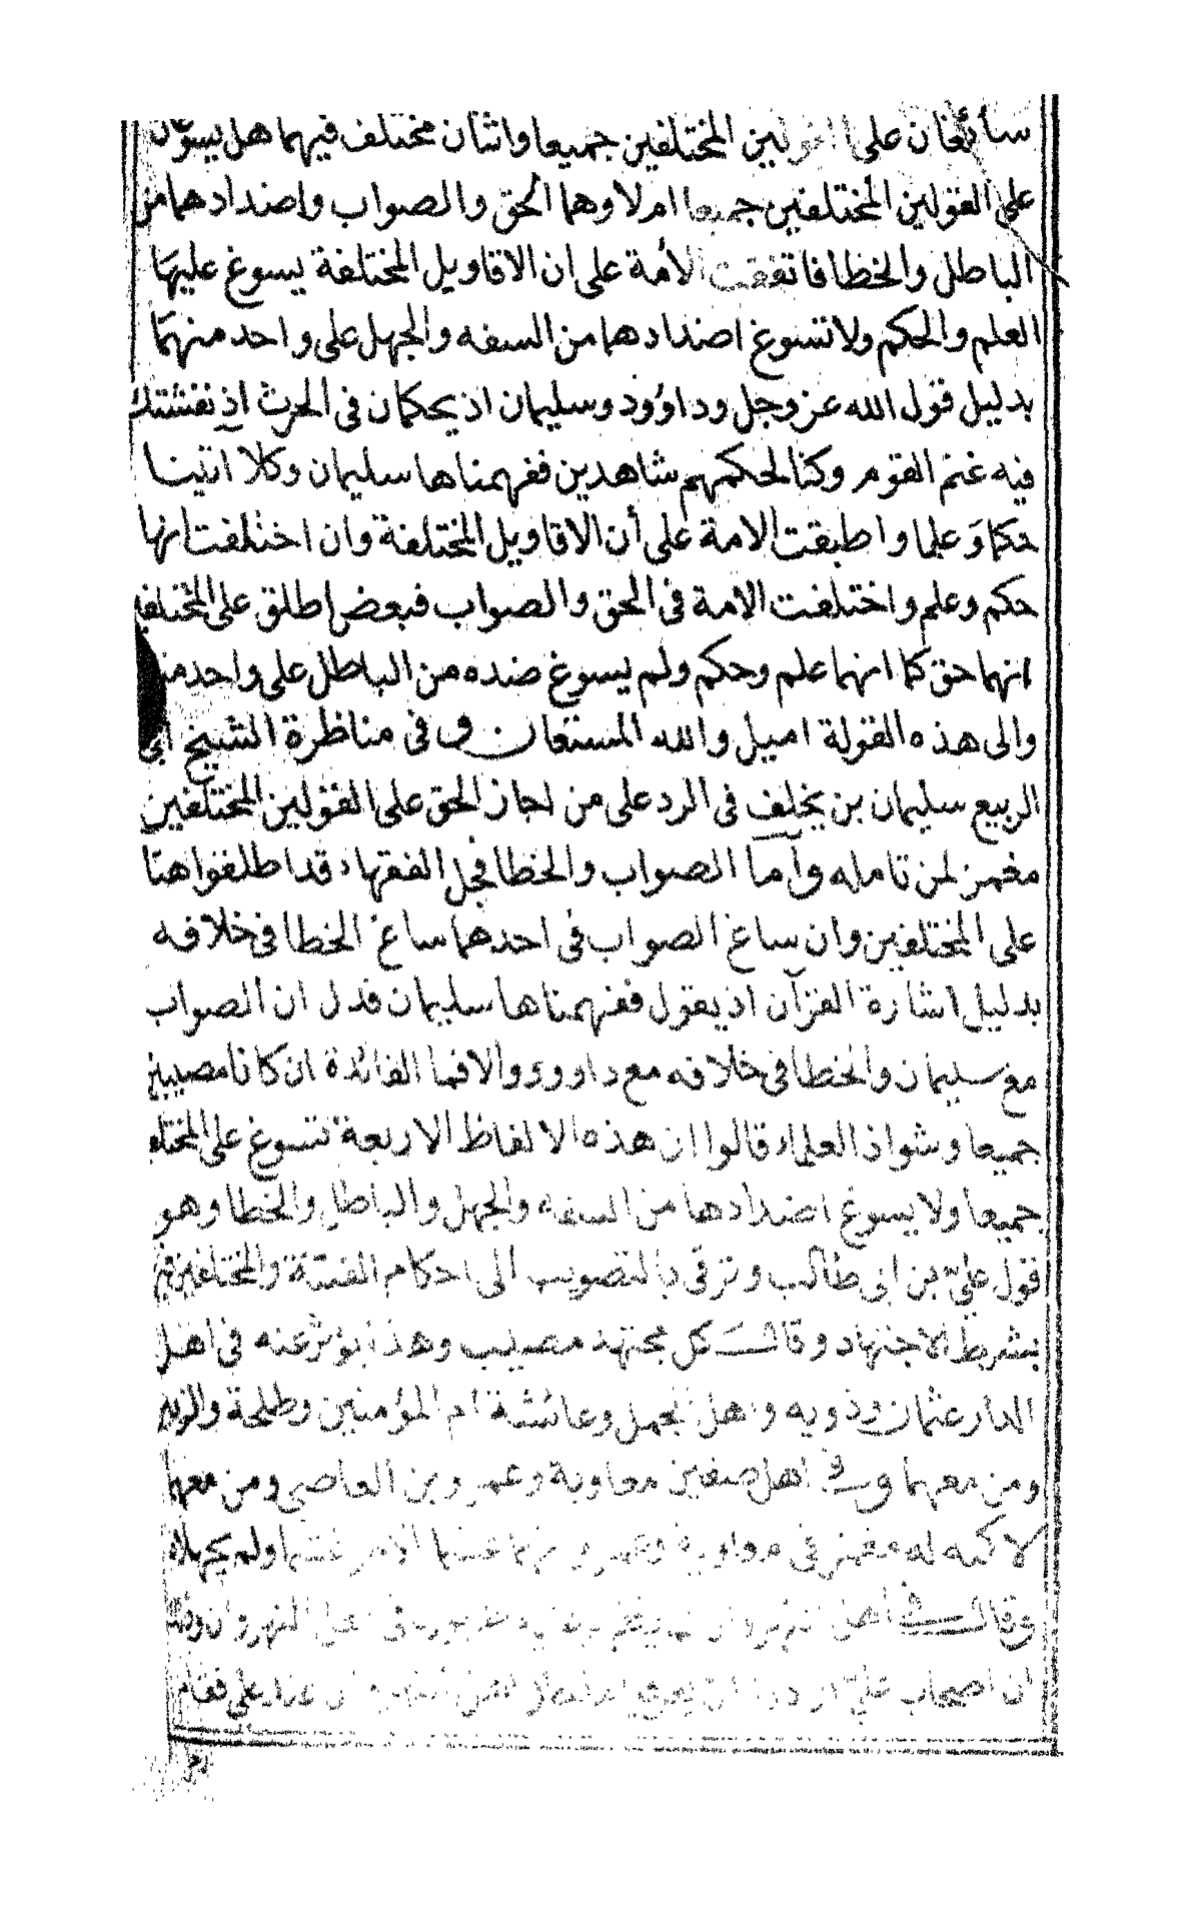 سائغان على القولين المختلفين جميعا واثنان مختلف فيهما هل يسوغان
على القولين المختلفين جميعا ام لا وهما الحق والصواب واضدادهما من
الباطل والخطا فاتفقت الأمة على ان الاقاويل المختلفة يسوغ عليها
العلم والحكم ولا تسوغ اضدادهما من السفه والجهل على واحد منهما
بدليل قول الله عز وجل وداوود وسليمان اذ يحكمان في الحرث اذ نفشت
فيه غنم القوم وكنا لحكمهم شاهدين ففهمناها سليمان وكلا اتينا
حكما وعلما واطبقت الامة على أن الاقاويل المختلفة وان اختلفت انها
حكم وعلم واختلفت الامة في الحق والصواب فبعض اطلق على المختلفين
انهما حق كما انهما علم وحكم ولم يسوغ ضده من الباطل على واحد
والى هذه القولة اميل والله المستعان وفي مناظرة الشيخ ابي
الربيع سليمان بن يخلف في الرد على من اجاز الحق على القولين المختلفين
مغمز لمن تامله وأما الصواب والخطا فجل الفقهاء قد اطلقوا هنا
على المختلفين وان ساغ الصواب في احدهما ساغ الخطا في خلافه
بدليل اشارة القرآن اذ يقول ففهمناها سليمان فدل ان الصواب
مع سليمان والخطا في خلافه مع داوود والا فما الفائدة ان كانا مصيبين
جميعا وشواذ العلماء قالوا ان هذه الالفاظ الاربعة تسوغ على
جميعا ولا يسوغ اضدادها من السفه والجهل والباطل والخطا وهو
قول علي بن ابي طالب وترقى بالتصويب الى احكام الفتنة والمختلفين
بشرط الاجتهاد وقال كل مجتهد مصيب وهذا يؤثر عنه في اهل
الدار عثمان وذويه واهل الجمل وعائشة ام المؤمنين وطلحة والزبير
ومن معهما وفي اهل صفين معاوية وعمرو بن العاصي ومن معهما
لاكنه له مغمز في معاوية وعمرو ولم يجهلاه
وقال في اهل النهروان
ان اصحاب علي على فقام